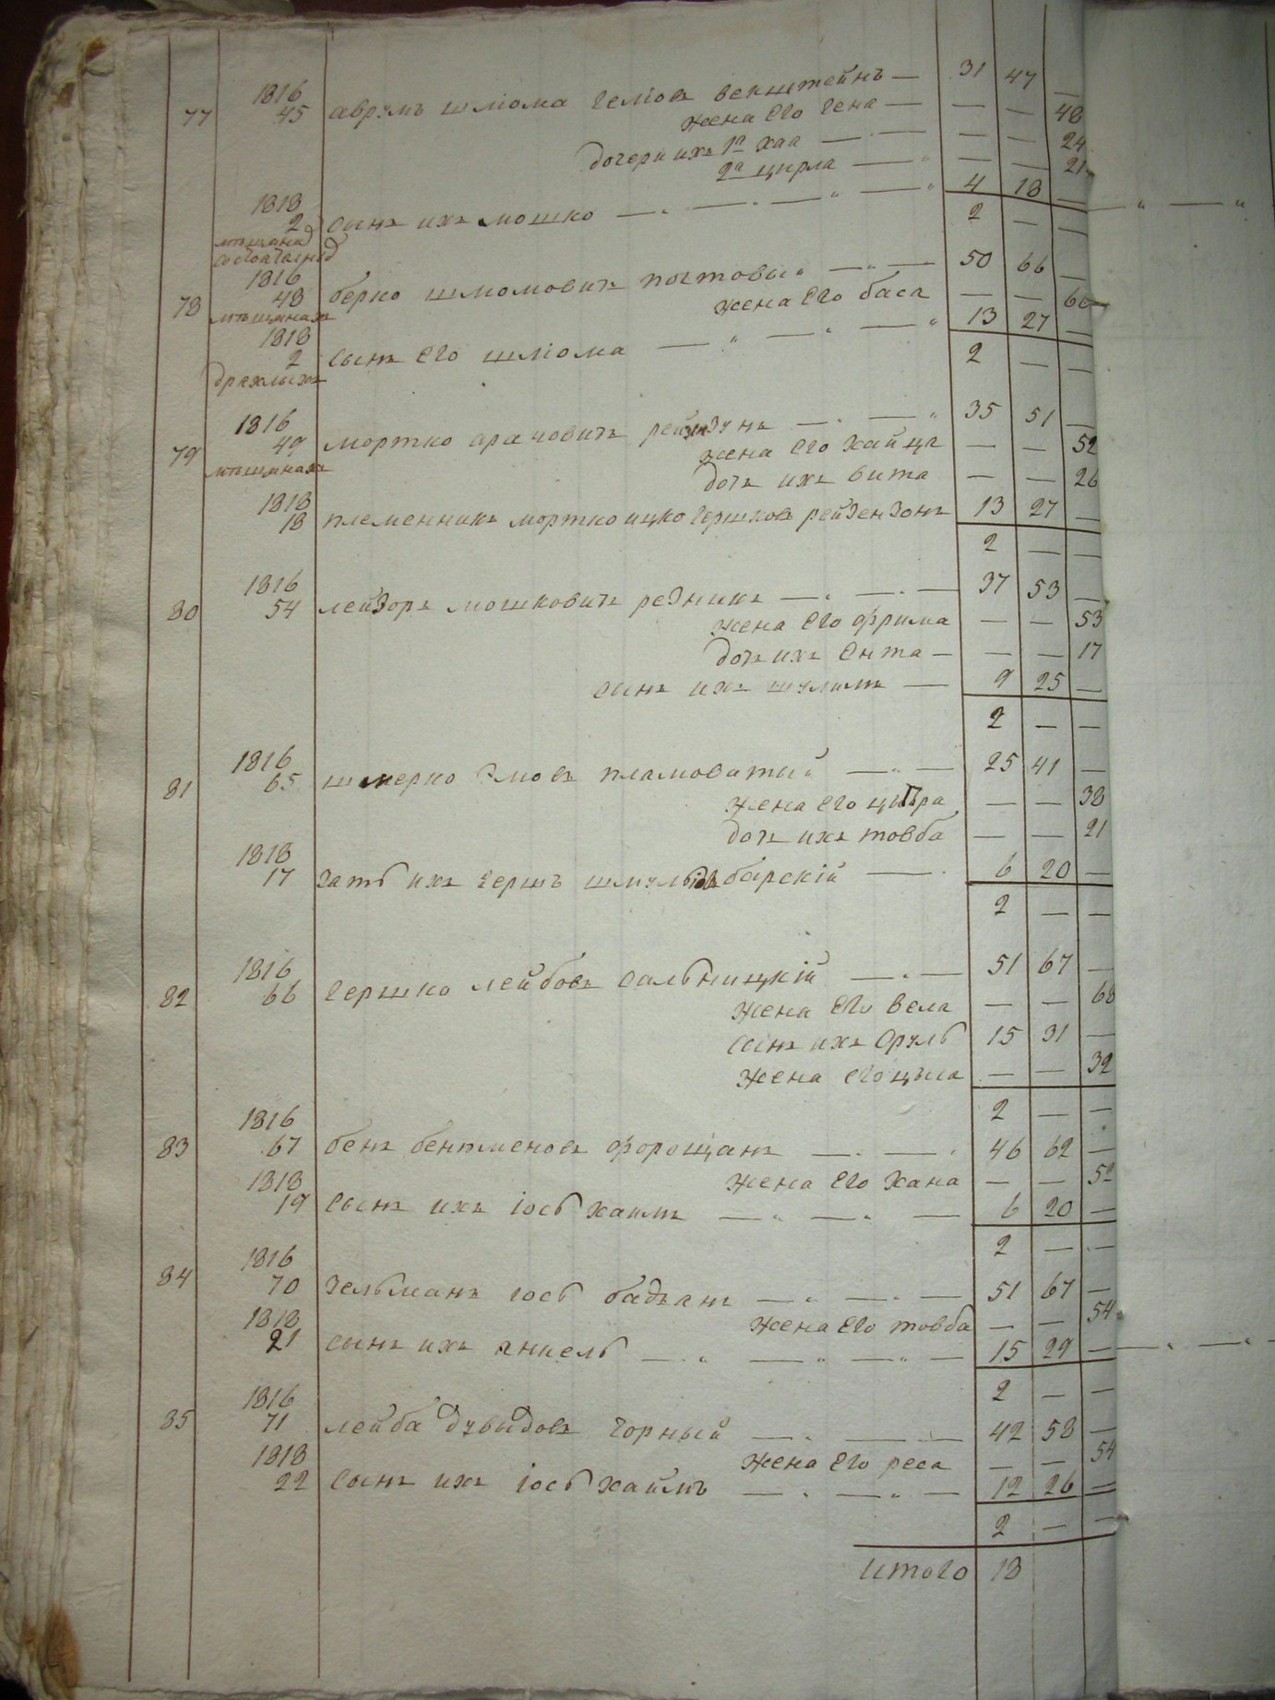 1816 31 47 —
77 45 аврумъ шліома геліовъ векштейнъ —
жена его гена — — — 48
дочери ихъ 1я хаа — — — 24
2я цирла — — — 21
1818 4 18 —
2 сынъ ихъ мошко — 2 — —
1816
78 48 берко шліомовичъ 50 66 —
мѣщанахъ жена его бася — — 60
1818 13 27 —
2 сынъ его шліома — 2 — —
дряхлыхъ
1816 35 51 —
79 49 мортко
мѣщанахъ жена его хайця — — 52
дочь ихъ вита — — 26
1818
18 племенникъ мортко ицко гершковъ рейзензонъ 13 27 —
2 — —
1816
80 54 лейзоръ мошковичъ резникъ — 37 53 —
жена его фрима — — 53
дочь ихъ ента — — — 17
сынъ ихъ шулимъ — 9 25 —
2 — —
1816
81 65 шмерко 25 41 —
жена его ципра — — 38
дочь ихъ товба — — 21
1818
17 зять ихъ гершъ шмульовъ барскій — 6 20 —
2 — —
1816
82 66 гершко лейбовъ сальницкій — 51 67 —
жена его вела — — 68
сынъ ихъ сруль 15 31 —
жена его цыпа — — 32
2 — —
1816
83 67 бенъ 46 62 —
1818 жена его хана — —
19 сынъ ихъ іось хаимъ — 6 20 —
2 — —
1816
84 70 зельманъ іось 51 67 —
1818 жена его товба — — 54
21 сынъ ихъ янкель — 15 29 —
2 — —
1816
85 71 лейба дувидовъ чорный — 42 58 —
1818 жена его реса — — 54
22 сынъ ихъ іось хаимъ — 12 26 —
2 — —
итого 18